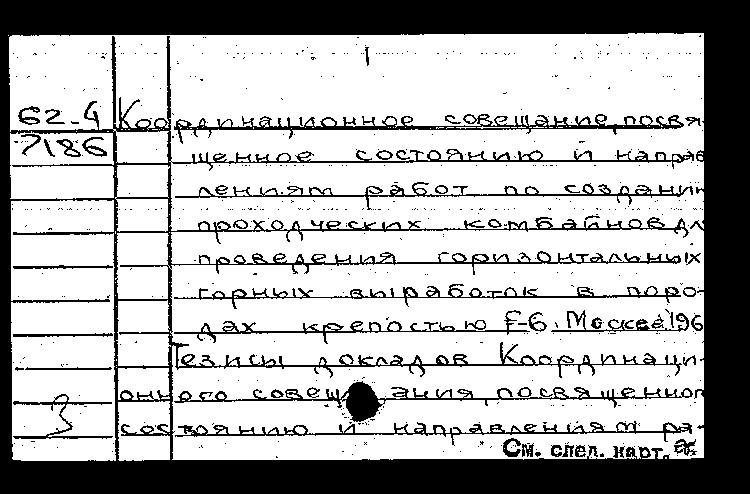 62-4 Координационное совещание, посвя-
7186 щенное состоянию и направ
лениям работ по создани
проходческих комбайнов дл
проведения горизонтальных
горных выработок в поро-
дах крепостью f-6. Москва 196
Тезисы докладов Координаци-
онного совещания, посвященног
3 состоянию и направлениям ра-
См. след. карт.